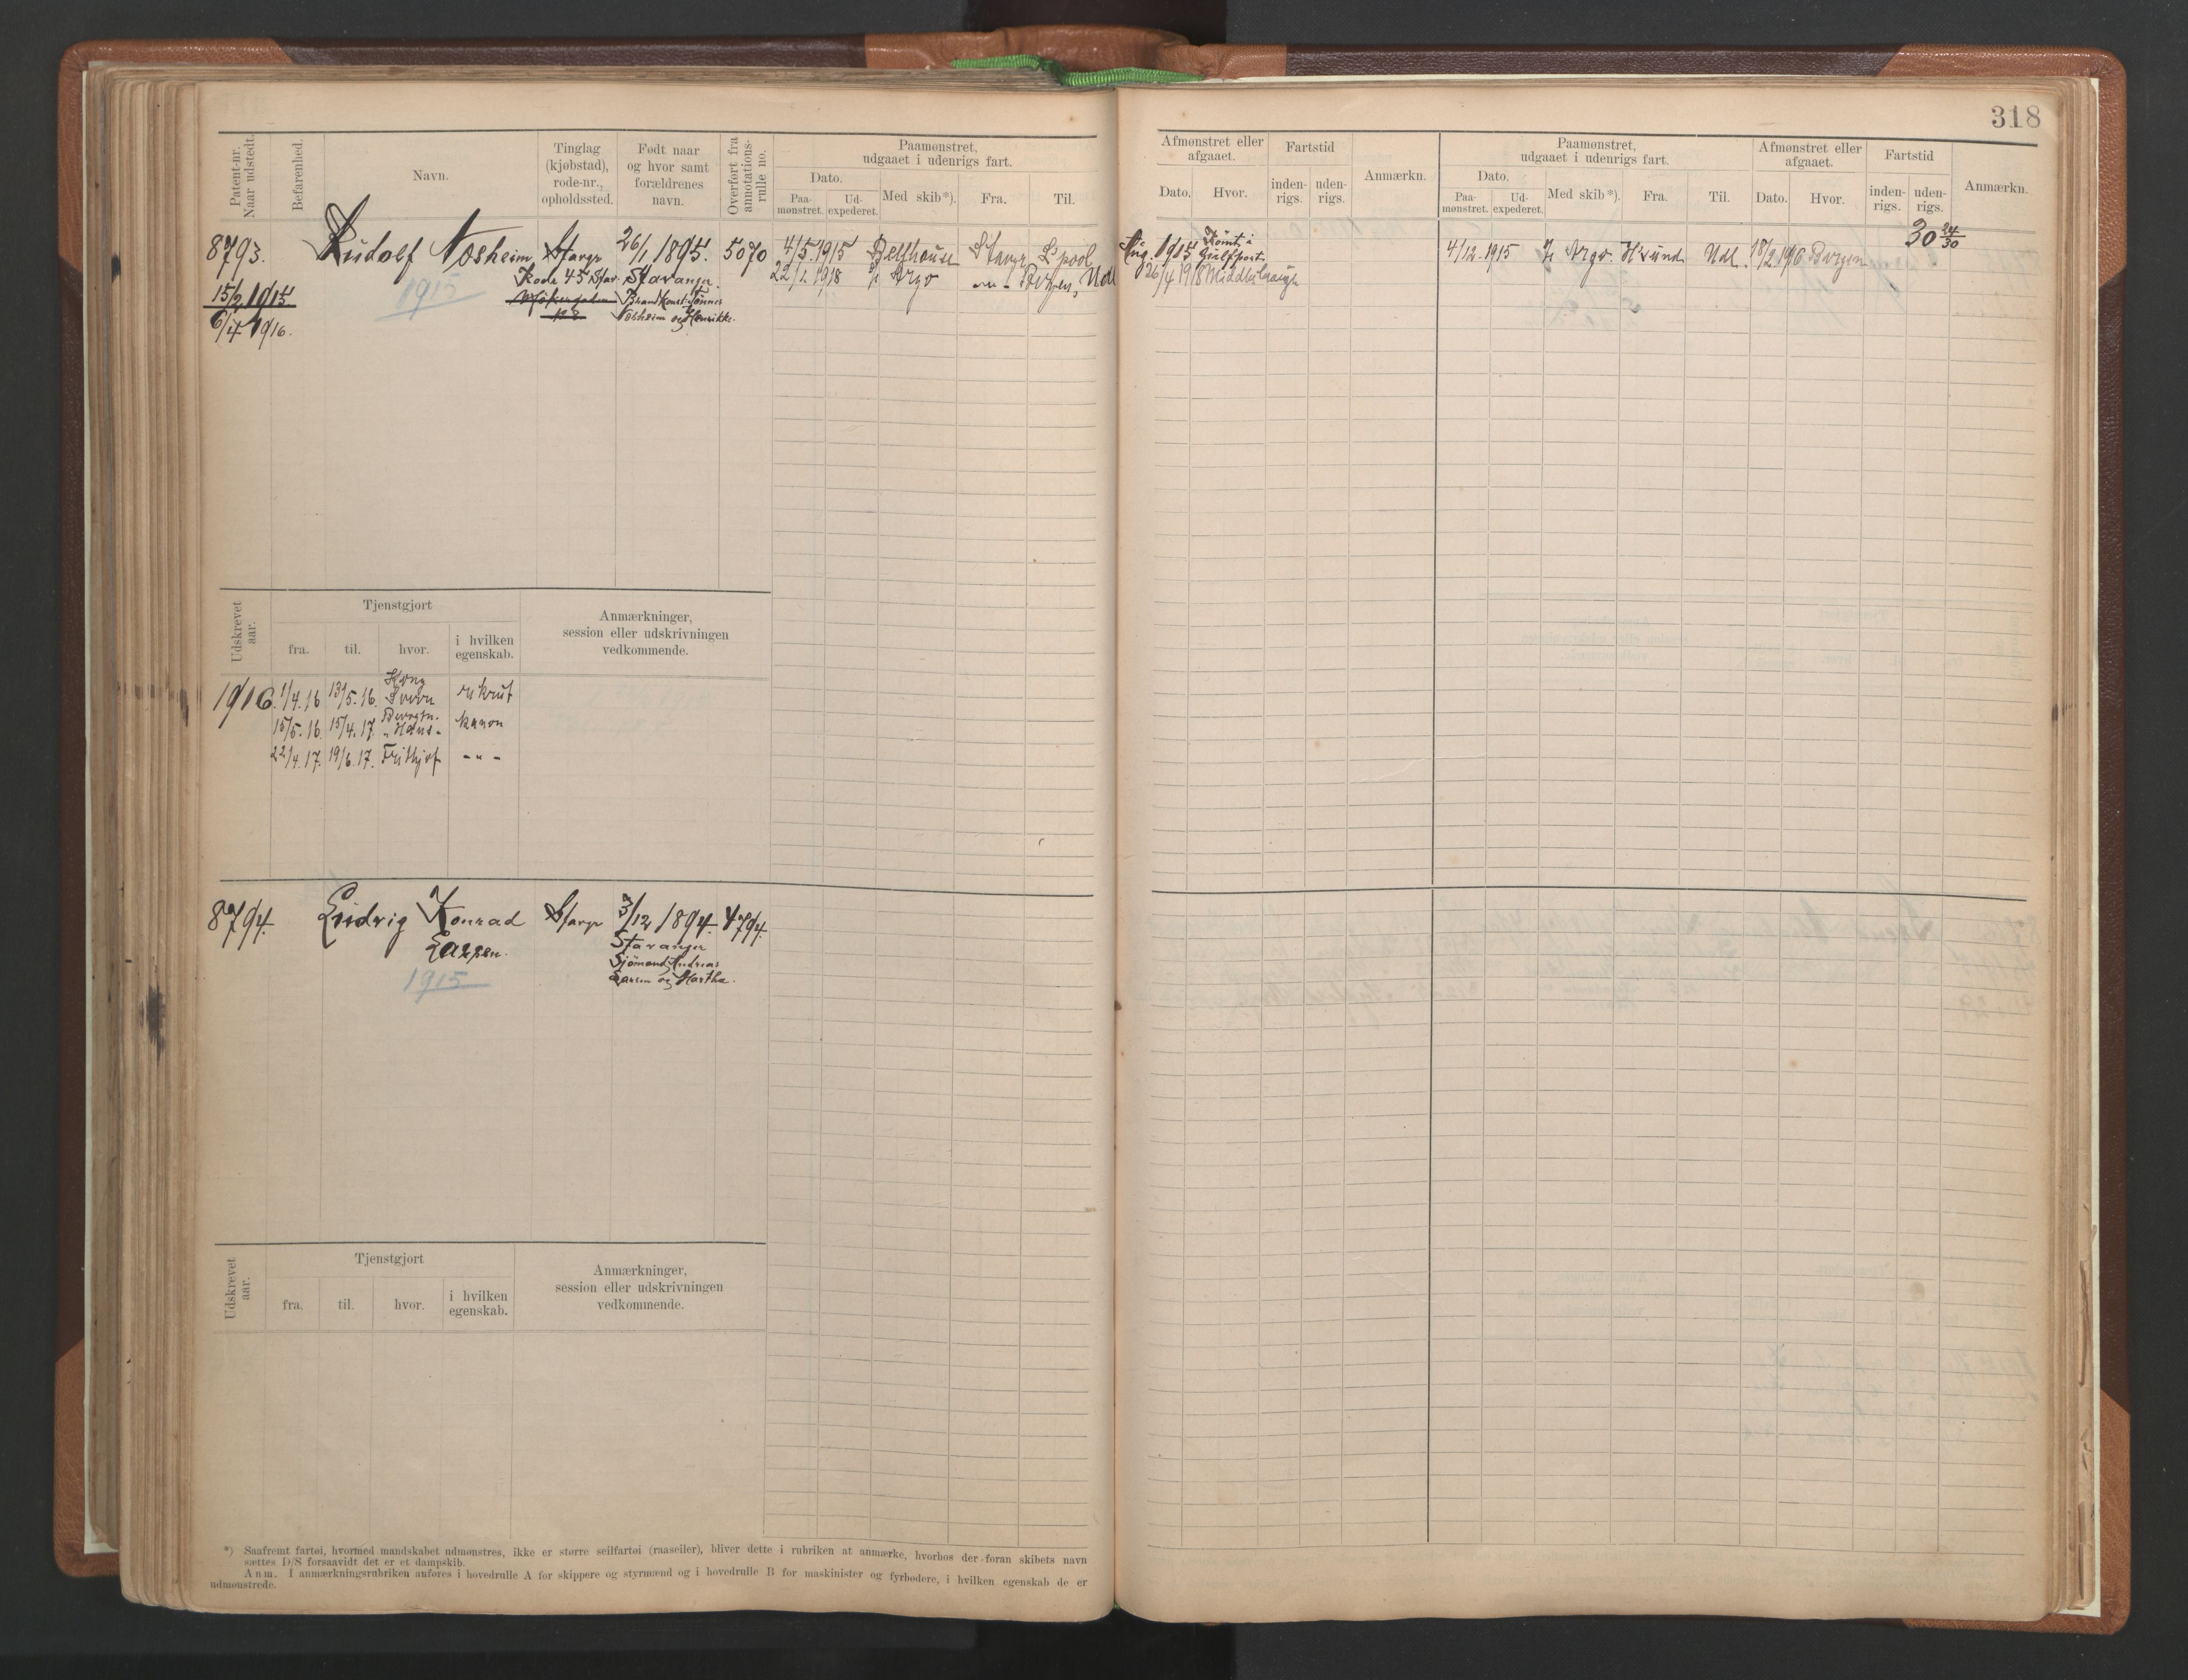 318
Patent-nr. Naar udstedt.
Befarenhed.
Navn.
Tinglag (kjøbstad), rode-nr., opholdssted.
Født naar og hvor samt forældrenes navn.
Overført fra annotations-rulle no.
Paamønstret, udgaaet i udenrigs fart.
Dato.
Paa-mønstret.
Ud-expederet.
Med skib*).
Fra.
Til.
Afmønstret eller afgaaet.
Dato.
Hvor.
Fartstid
inden-rigs.
uden-rigs.
Anmærkn.
Paamønstret, udgaaet i udenrigs fart.
Dato.
Paa-mønstret.
Ud-expederet.
Med skib*).
Fra.
Til.
Afmønstret eller afgaaet.
Dato.
Hvor.
Fartstid
inden-rigs.
uden-rigs.
Anmærkn.
8793.
15/2 1915
6/4 1916.
Rudolf Nosheim
1915
Stavgr
Rode 45 Stav.
26/1 1895.
Stavanger.
Brandkonst. Tönnes
Nosheim og Henrikke.
5070
4/5 1915 Bellhouse Stavgr L'pool
22/1 1918 Argo Bergen, Udl
Aug. 1915 Römt i Gulfport
26/4 1918 Middlesbrough
4/12.1915 Argo. H.sund Udl. 18/2 1916 Bergen
30 24/30
Udskrevet aar.
Tjenstgjort
fra.
til.
hvor.
i hvilken egenskab.
Anmærkninger, session eller udskrivningen vedkommende.
1916. 1/4.16 13/5.16. Kong Sverre rekrut
15/5.16. 15/4.17. Bergen. "Hauk" kanon
22/4.17. 19/6.17. Frithjof - " -
8794.
Ludvig Konrad
Larsen.
1915
Stavgr
3/12 1894.
Stavanger
Sjömand Andreas
Larsen og Martha.
4794.
Udskrevet aar.
Tjenstgjort
fra.
til.
hvor.
i hvilken egenskab.
Anmærkninger, session eller udskrivningen vedkommende.
*) Saafremt fartøi, hvormed mandskabet udmønstres, ikke er større seilfartøi (raaseiler), bliver dette i rubriken at anmærke, hvorhos der foran skibets navn
sættes D/S forsaavidt det er et dampskib.
Anm. I anmærkningsrubriken anføres i hovedrulle A for skippere og styrmænd og i hovedrulle B for maskinister og fyrbødere, i hvilken egenskab de er
udmønstrede.